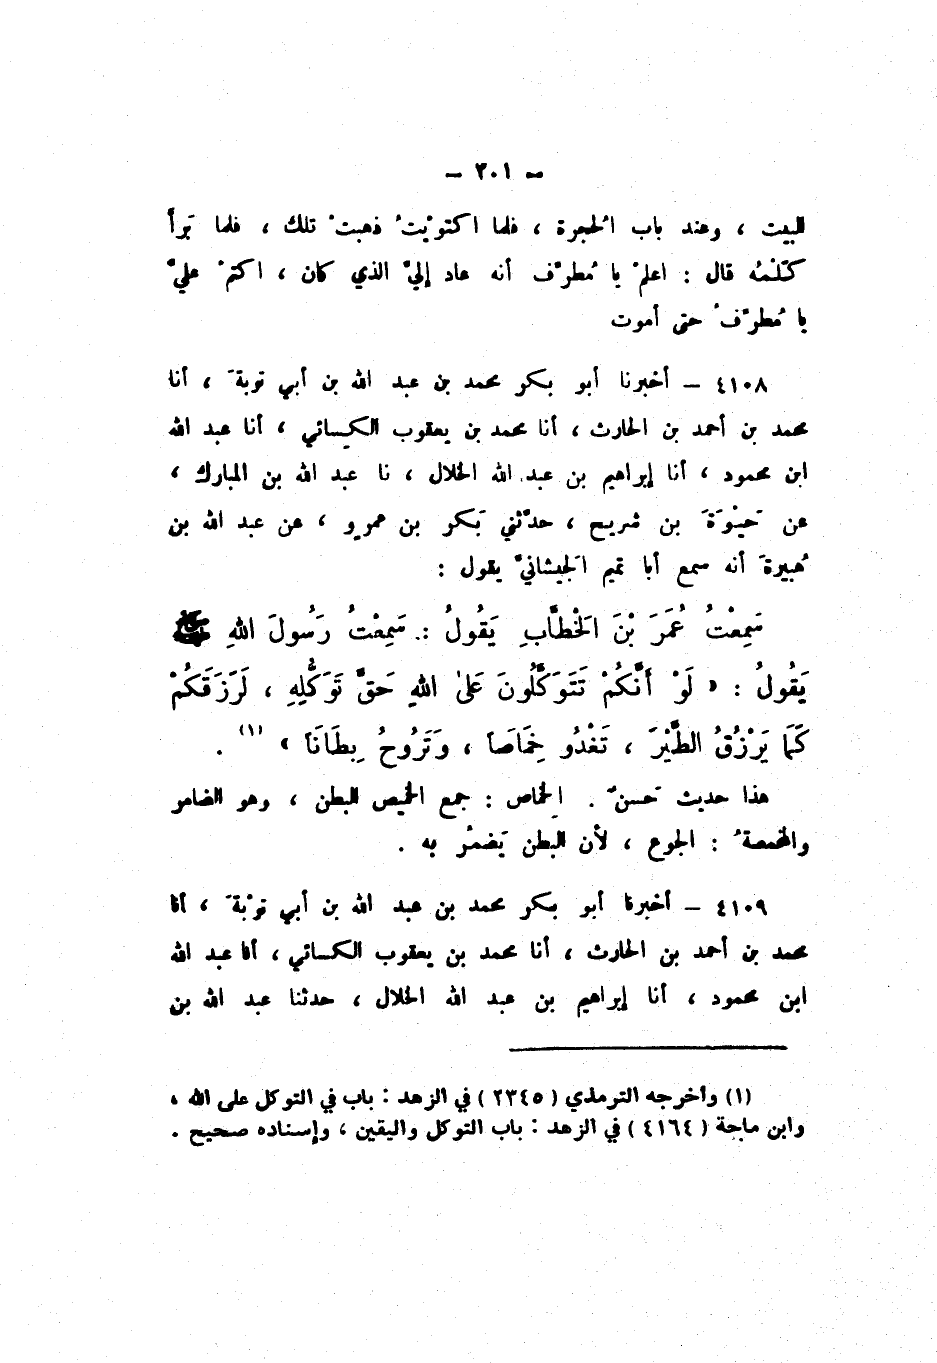 – ٣٠١ –
البيت ، وعند باب الُحجرة ، فلما اكتويْتُ ذهبتْ تلك ، فلما بَرأَ
كلَّمْتُه قال : اعلمْ يا مُطرّف أنه عاد إليَّ الذي كان ، اكتمْ عليَّ
يا مُطرّفُ حتى أموت
٤١٠٨ – أخبرنا أبو بكر محمد بن عبد الله بن أبي توبةَ ، أنا
محمد بن أحمد بن الحارث ، أنا محمد بن يعقوب الكسائي ، أنا عبد الله
ابن محمود ، أنا إبراهيم بن عبد الله الخلال ، نا عبد الله بن المبارك ،
عن حَيْوَةَ بن شريح ، حدّثني بَكر بن عمرو ، عن عبد الله بن
هُبيرةَ أنه سمع أبا تميم الَجيشانيَّ يقول :
سَمِعْتُ عُمَرَ بْنَ الْخَطَّابِ يَقُولُ : سَمِعْتُ رَسُولَ اللهِ ﷺ
يَقُولُ : « لَوْ أَنَّكُمْ تَتَوَكَّلُونَ عَلىٰ اللهِ حَقَّ تَوَكُّلِهِ ، لَرَزَقَكُمْ
كَمَا يَرْزُقُ الطَّيْرَ ، تَغْدُو خِمَاصَاً ، وَتَرُوحُ بِطَانَاً » (١) .
هذا حديث حَسنٌ . الِخماص : جمع الخميص البطن ، وهو الضامر
والمخمصةُ : الجوع ، لأن البطن يَضمُر به .
٤١٠٩ – أخبرنا أبو بكر محمد بن عبد الله بن أبي توْبةَ ، أنا
محمد بن أحمد بن الحارث ، أنا محمد بن يعقوب الكسائي ، أنا عبد الله
ابن محمود ، أنا إبراهيم بن عبد الله الخلال ، حدثنا عبد الله بن
(١) وأخرجه الترمذي ( ٢٣٤٥ ) في الزهد : باب في التوكل على الله ،
وابن ماجة ( ٤١٦٤ ) في الزهد : باب التوكل واليقين ، وإسناده صحيح .